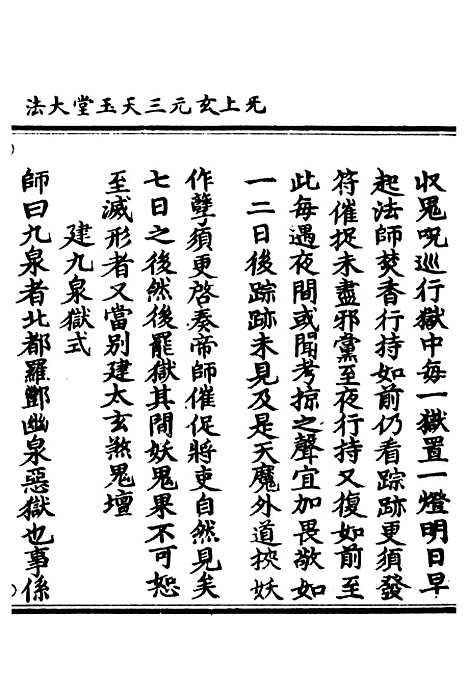 法大堂玉天三元玄上旡
収鬼呪巡行獄中每一獄置一燈明日早
起法師焚香行持如前仍看踪跡更須發
符催捉未盡邪黨至夜行持又復如前至
此每遇夜間或聞考掠之聲宜加畏敬如
一二日後踪跡未見及是天魔外道挾妖
作孽須更啓奏帝師催促將吏自然見矣
七日之後然後罷獄其間妖鬼果不可恕
至滅形者又當別建太玄煞鬼壇
建九泉獄式
師曰九泉者北都羅酆幽泉惡獄也事係